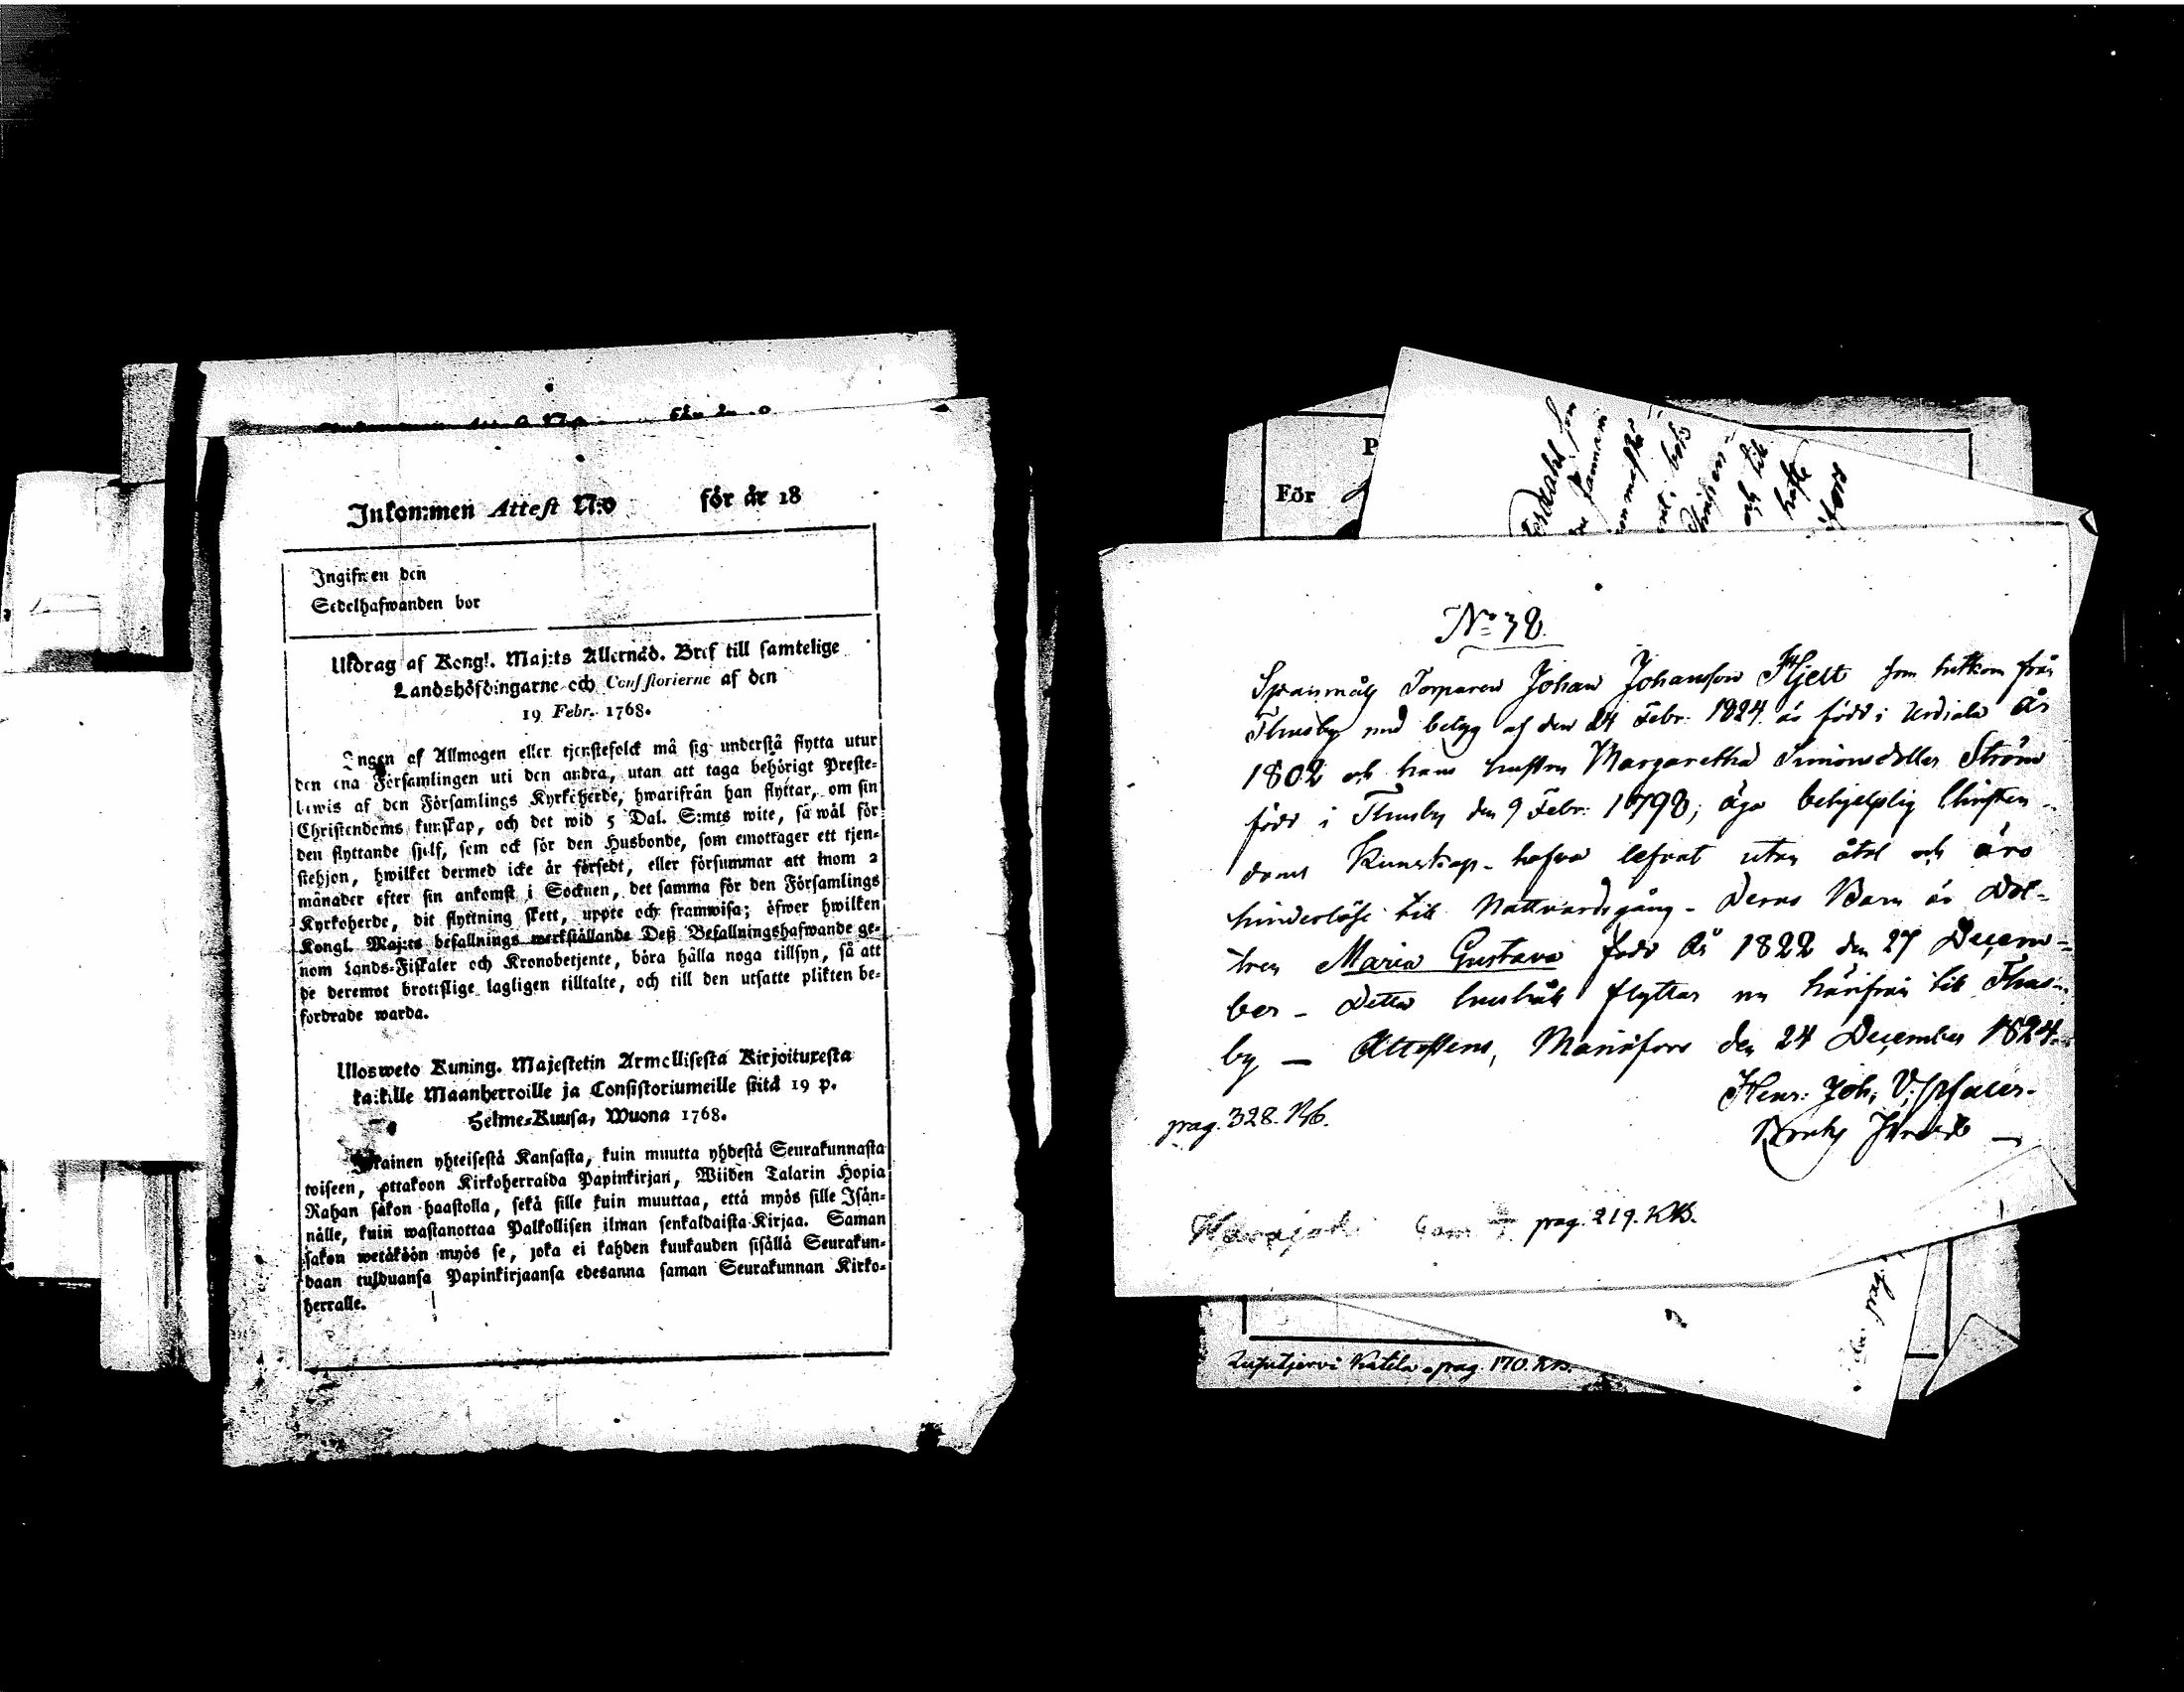 Inkommen Attest N:o för år 18
Ingifwen den
Sedelhafwanden bor
Utdrag af Kongl. Maj:ts Allernåd. Bref till samtelige
Landshöfdingarne och Consistorierne af den
19 Febr. 1768.
Ingen af Allmogen eller tjenstefolck må sig understå flytta utur
den ena Församlingen uti den andra, utan att taga behörigt Preste-
bewis af den Församlings Kyrkoherde, hwarifrån han flyttar, om sin
Christendoms kunskap, och det wid 5 Dal. S:mts wite, så wäl för
den flyttande sjelf, som ock för den Husbonde, som emottager ett tjen-
stehjon, hwilket dermed icke är försedt, eller försummar att inom 2
månader efter sin ankomst i Socknen, det samma för den Församlings
Kyrkoherde, dit flyttning skett, uppte och framwisa; öfwer hwilken
Kongl. Maj:ts befallnings werkställande Deß Befallningshafwande ge-
nom Lands-Fiskaler och Kronobetjente, böra hålla noga tillsyn, så att
de deremot brotislige lagligen tilltalte, och till den utsatte plikten be-
fordrade warda.
Ulosweto Kuning. Majestetin Armollisesta Kirjoituxesta
kaikille Maanherroille ja Consistoriumeille siitä 19 p.
Helme-Kuusa, Wuona 1768.
Jokainen yhteisestä Kansasta, kuin muutta yhdestä Seurakunnasta
toiseen, ottakoon Kirkoherralda Papinkirjan, Wiiden Talarin Hopia
Rahan sakon haastolla, sekä sille kuin muuttaa, että myös sille Isän-
nälle, kuin wastanottaa Palkollisen ilman senkaldaista Kirjaa. Saman
sakon wetäköön myös se, joka ei kahden kuukauden sisällä Seurakun-
daan tulduansa Papinkirjaansa edesanna saman Seurakunnan Kirko-
herralle.
För
No 38.
Torparen Johan Johansson Hjelt som hitkom från
Thusby med betyg af den 24 Febr. 1824. är född i Urdiala År
1802 och hans hustru Margaretha Simonsdotter Ström
född i Thusby den 9 Febr. 1798; äga behjelplig Christen-
doms Kunskap - hafva lefvat utan åtal och äro
hinderlöse till Nattvardsgång - Deras Barn är Dot-
tren Maria Gustava född År 1822 den 27 Decem-
ber - Detta hushåll flyttar nu härifrån till Thus-
by - Attesteras, Mariæfors den 24 December 1824.
Henr. Joh.
prag. 328. Kb.
prag. 219. KB.
Katila prag. 170. KB.